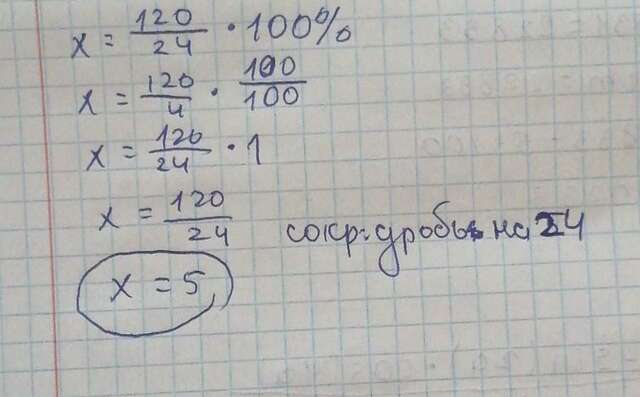 x = 120/24 · 100%
x = 120/4 · 100/100
x = 120/24 · 1
x = 120/24 сокр. дробь на 24
x = 5